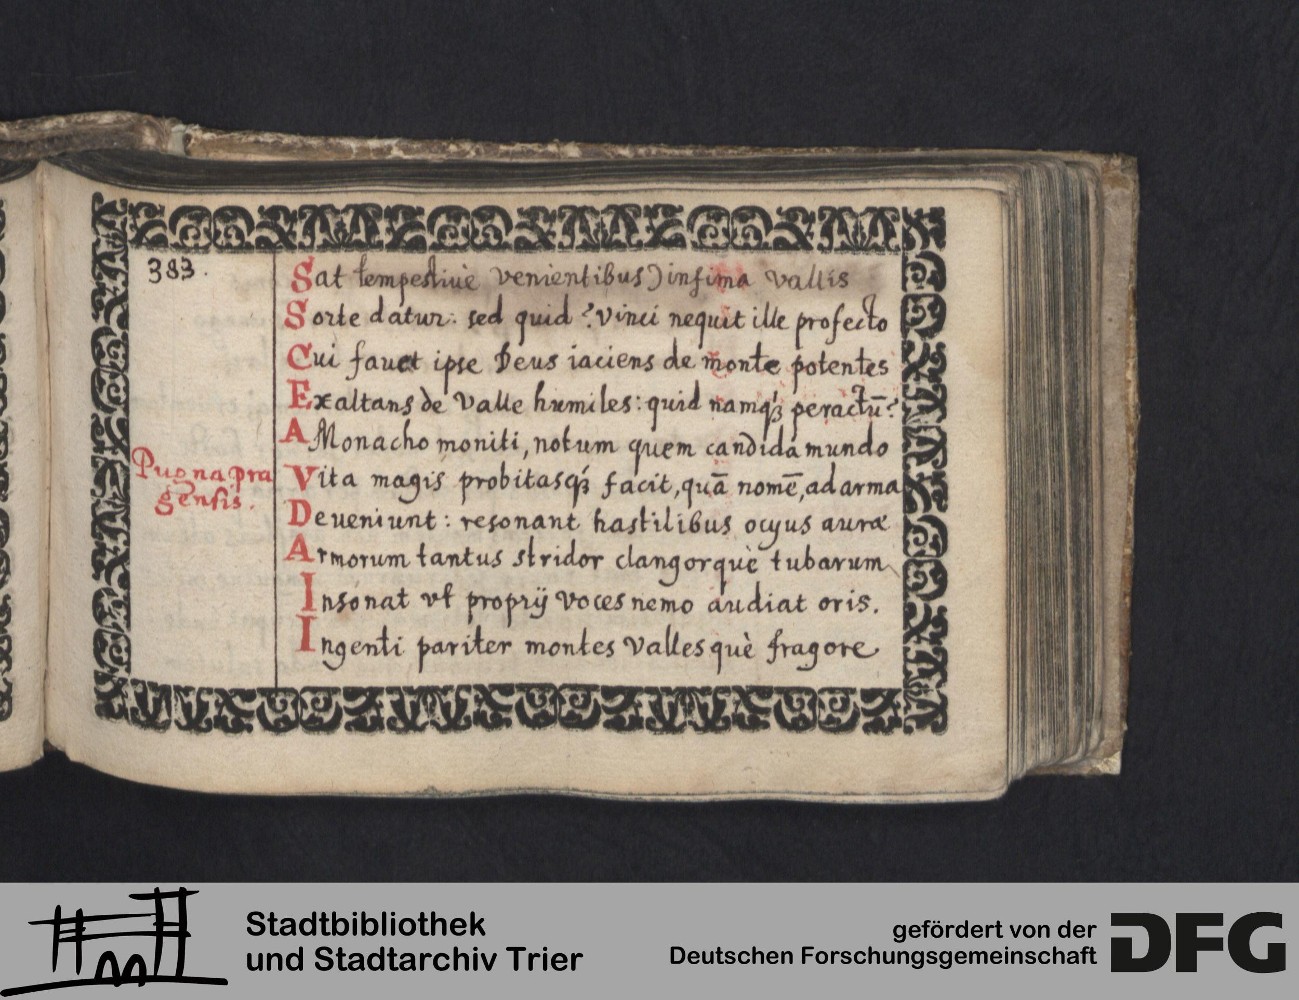 383.
Sat tempestiuè venientibus) infima vallis
Sorte datur: sed quid? vinci nequit ille profecto
Cui fauet ipse Deus iaciens de monte potentes
Exaltans de Valle humiles: quid namq́; peractū?
A Monacho moniti, notum quem candida mundo
Pugna pra
gensis.
Vita magis probitasq́; facit, quā nomē, ad arma
Deueniunt: resonant hastilibus ocyus auræ
Armorum tantus stridor clangorquè tubarum
Insonat vt proprij voces nemo audiat oris.
Ingenti pariter montes Vallesquè fragore
Stadtbibliothek
und Stadtarchiv Trier
gefördert von der
Deutschen Forschungsgemeinschaft
DFG